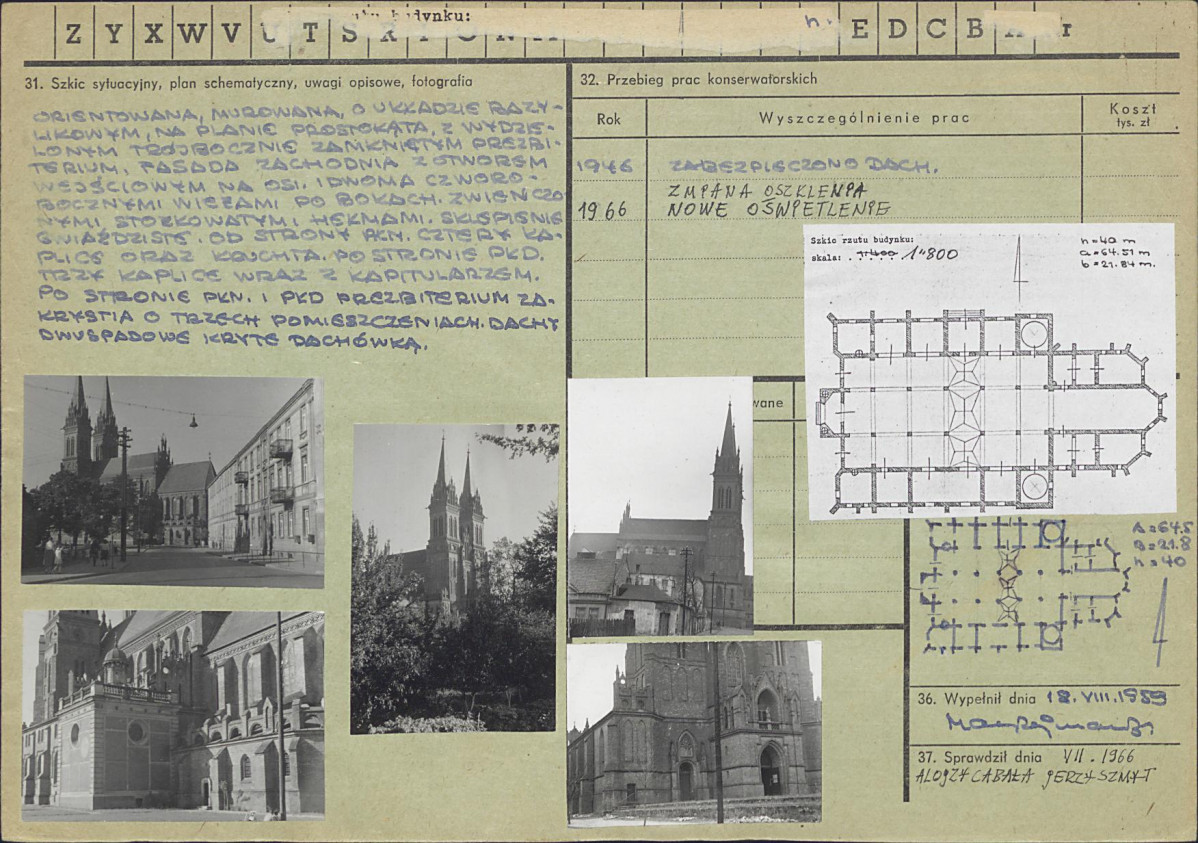 Z Y X W V U T S
rzutu budynku:
E D C B
31. Szkic sytuacyjny, plan schematyczny, uwagi opisowe, fotografia
ORIENTOWANA, MUROWANA, O UKŁADZIE BAZY-
LIKOWYM, NA PLANIE PROSTOKĄTA, Z WYDZIE-
LONYM TRÓJBOCZNIE ZAMKNIĘTYM PREZBI-
TERIUM. FASADA ZACHODNIA Z OTWOREM
WEJŚCIOWYM NA OSI. I DWOMA CZWORO-
BOCZNYMI WIEŻAMI PO BOKACH. ZWIEŃCZO
NYMI STOŻKOWATYMI HEŁMAMI. SKLEPIENIE
GWIAŹDZISTE. OD STRONY PŁN. CZTERY KA-
PLICE ORAZ KRUCHTA. PO STRONIE PŁD.
TRZY KAPLICE WRAZ Z KAPITULARZEM.
PO STRONIE PŁN. I PŁD PREZBITERIUM ZA-
KRYSTIA O TRZECH POMIESZCZENIACH. DACHY
DWUSPADOWE KRYTE DACHÓWKĄ.
32. Przebieg prac konserwatorskich
Rok
Wyszczególnienie prac
Koszt
tys. zł
1946 ZABEZPIECZONO DACH.
ZMIANA OSZKLENIA
1966 NOWE OŚWIETLENIE
Szkic rzutu budynku:
skala: 1:400 1:800
h=40 m
a=64.51 m
b=21.84 m.
wane
A=64.5
B=21.8
h=40
36. Wypełnił dnia 18.VIII.1959
37. Sprawdził dnia VII.1966
ALOJZY CABAŁA JERZY SZMYT